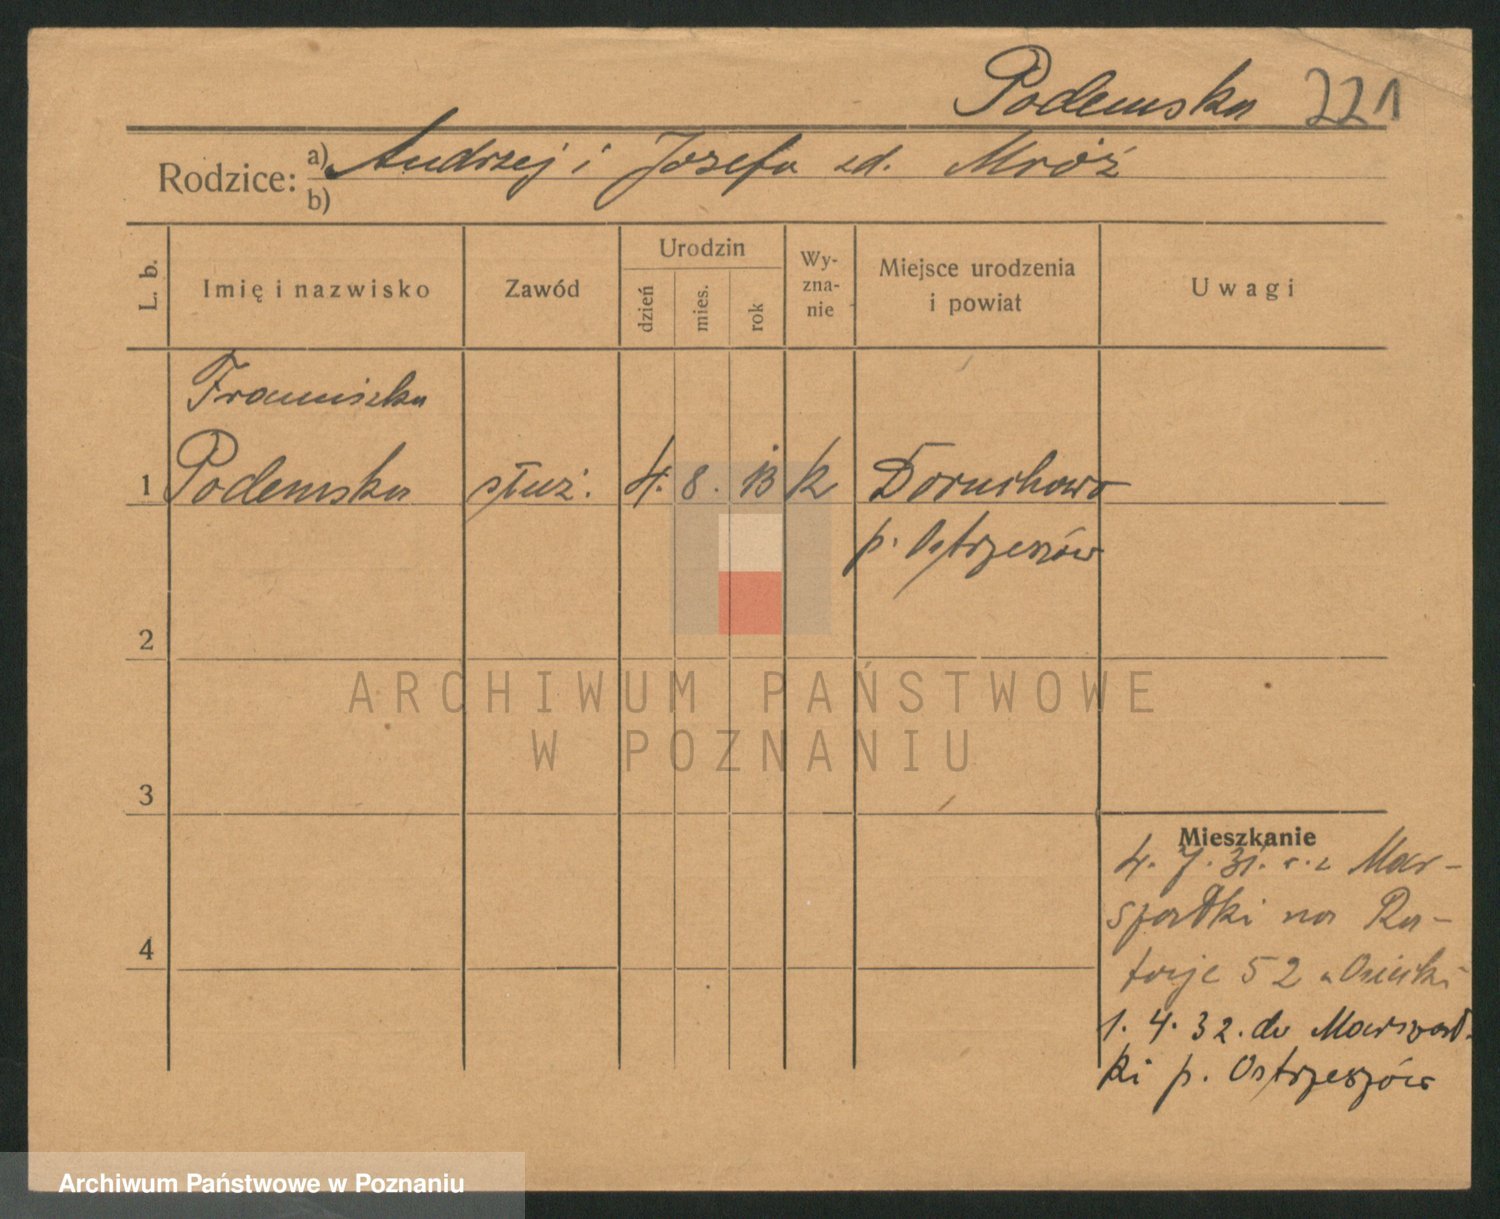 Podemska 221
Rodzice: a) Andrzej i Józefa zd. Mróź
b)
L. b. Imię i nazwisko Zawód Urodzin dzień mies. rok Wy-zna-nie Miejsce urodzenia i powiat Uwagi
Franciszka
1 Podemska służ. 4. 8. 13 k Doruchowo
p. Ostrzeszów
2
ARCHIWUM PAŃSTWOWE
W POZNANIU
3
Mieszkanie
4. 7. 31. z Mar-
szałki na Ra-
4
taje 52
1. 4. 32. do Marszał-
ki p. Ostrzeszów
Archiwum Państwowe w Poznaniu